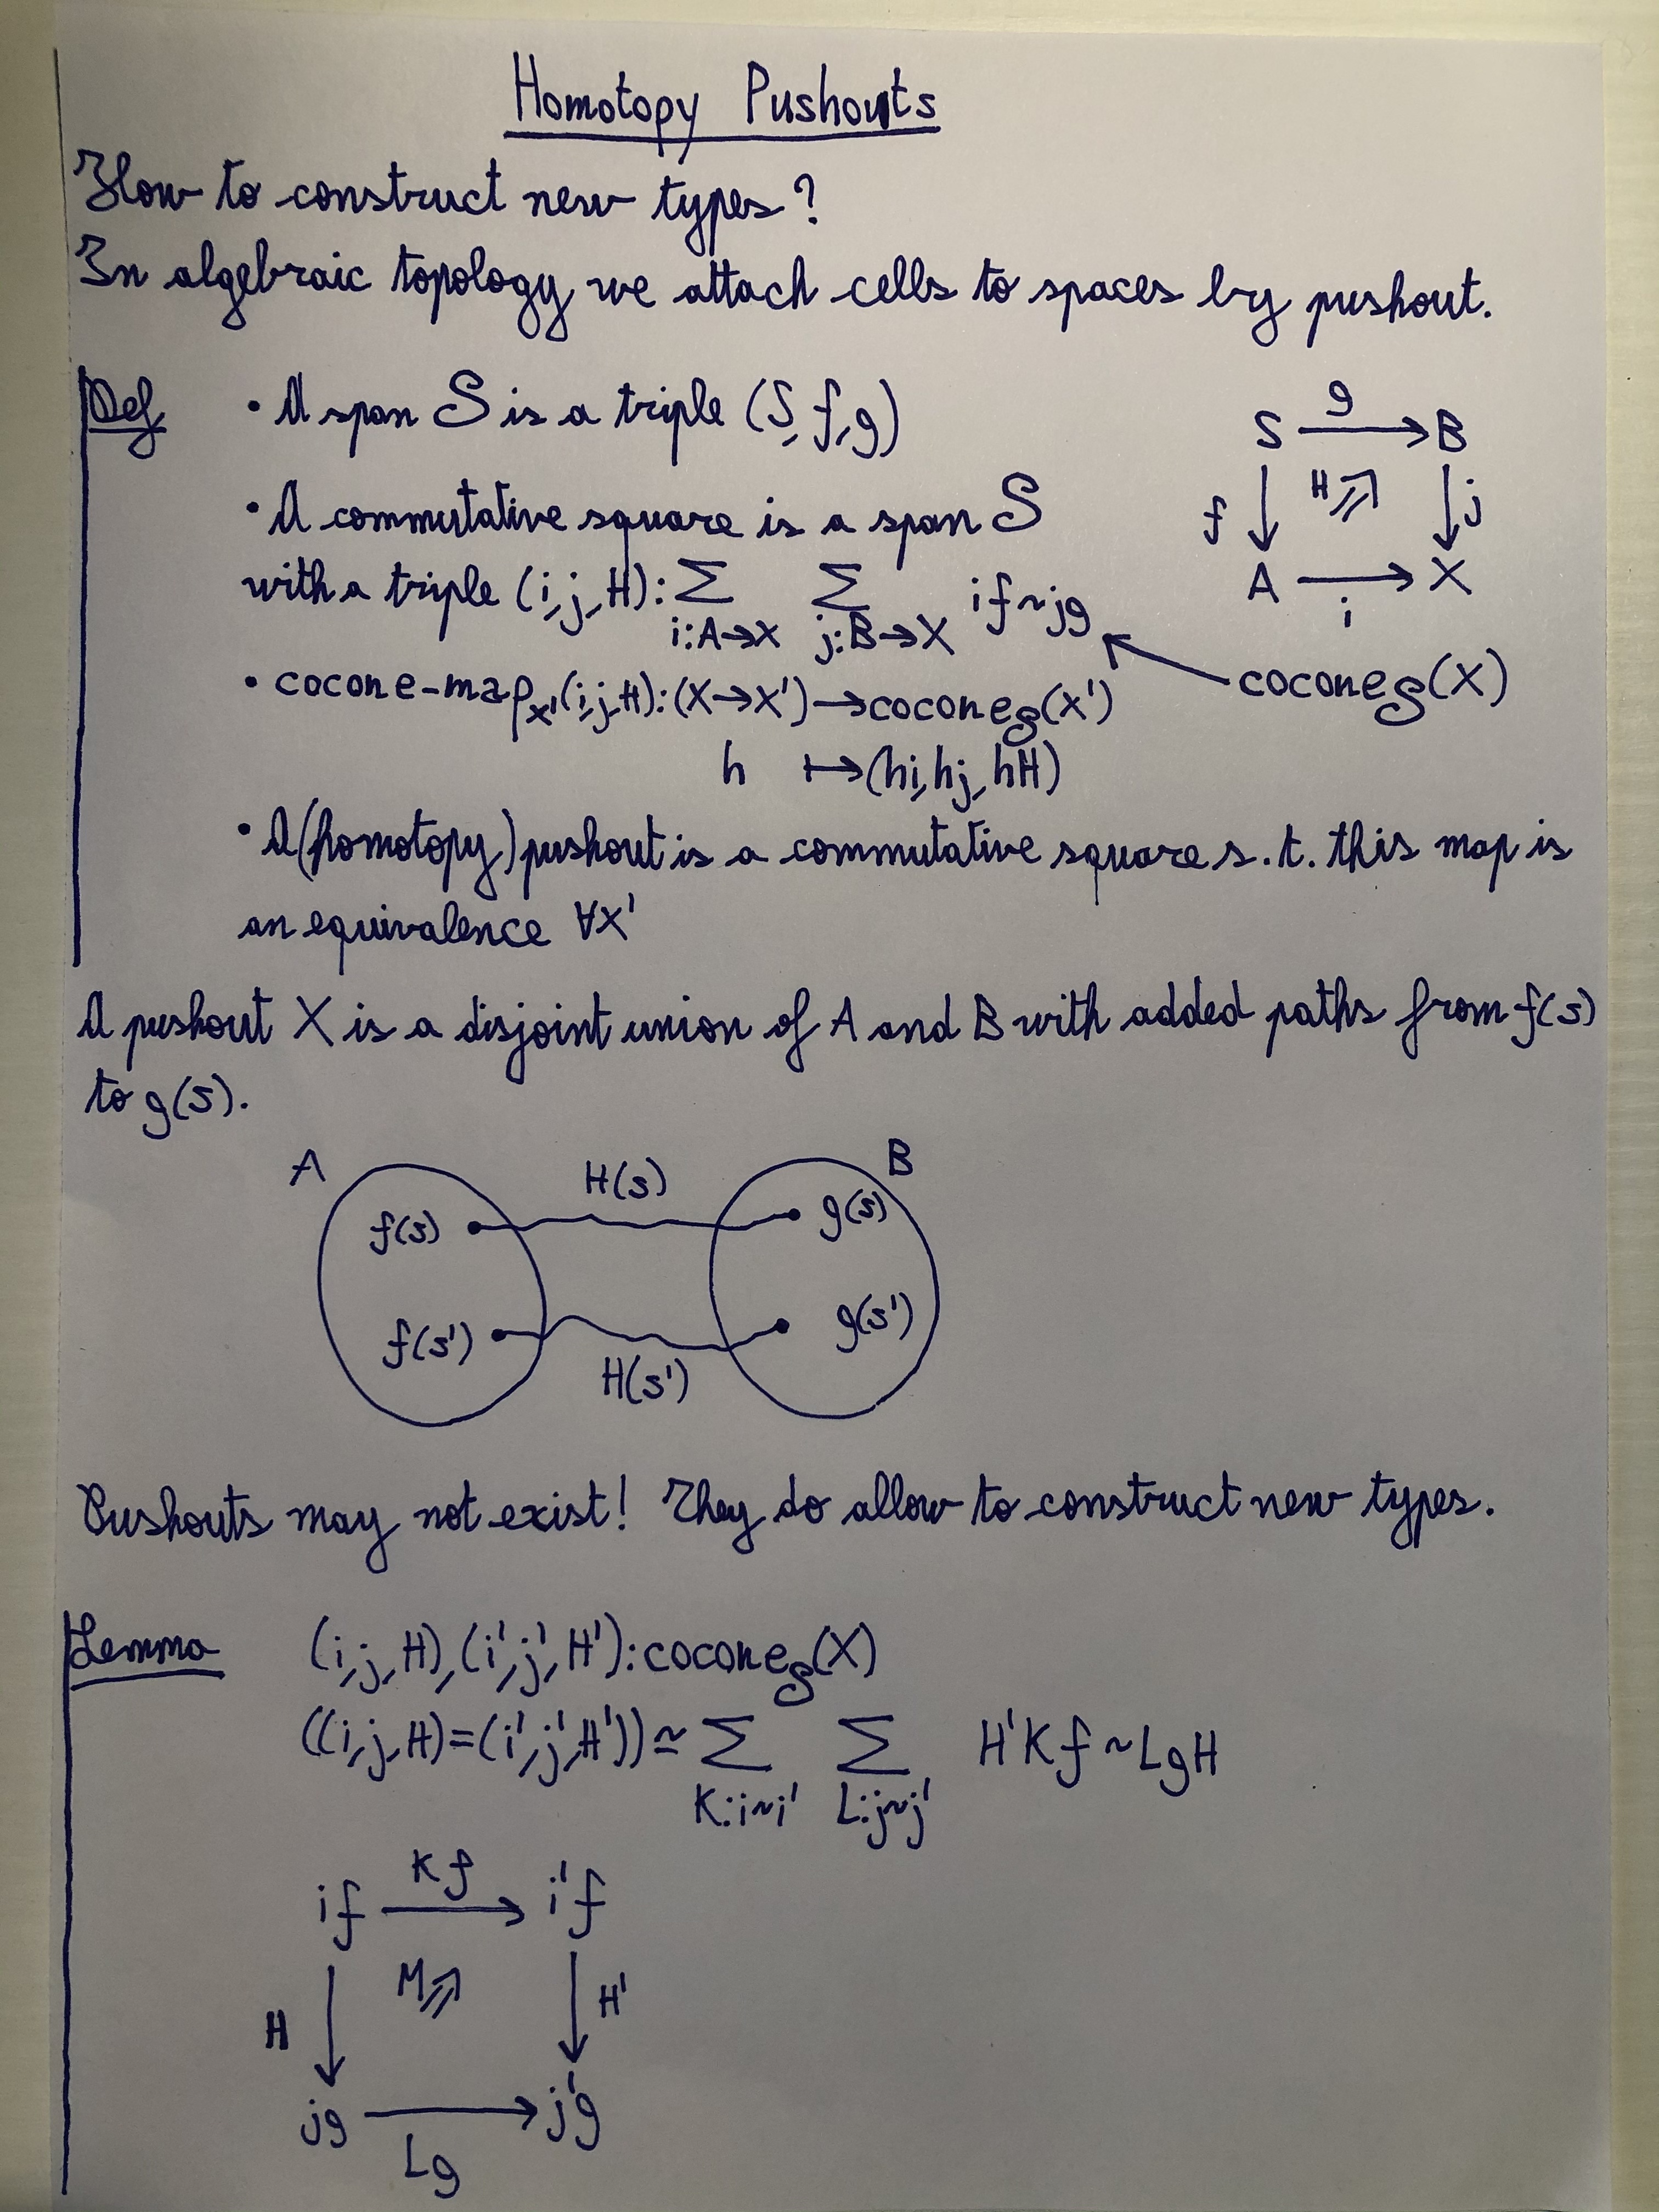 Homotopy Pushouts
How to construct new types?
In algebraic topology we attach cells to spaces by pushout.
Def • A span 𝒮 is a triple (S, f, g)
S g B
• A commutative square is a span 𝒮
f H ⇗ j
with a triple (i, j, H): Σ Σ if~jg
i:A→X j:B→X
A i X
cocone𝒮(X)
• cocone-map_X'(i,j,H): (X→X')→cocone𝒮(X')
h ↦ (hi, hj, hH)
• A (homotopy) pushout is a commutative square s.t. this map is
an equivalence ∀X'
A pushout X is a disjoint union of A and B with added paths from f(s)
to g(s).
A H(s) B
f(s) g(s)
f(s') g(s')
H(s')
Pushouts may not exist! They do allow to construct new types.
Lemma (i, j, H), (i', j', H'): cocone𝒮(X)
((i, j, H)=(i', j', H'))≃ Σ Σ H'Kf~LgH
K:i~i' L:j~j'
if Kf i'f
H M ⇗ H'
jg Lg j'g